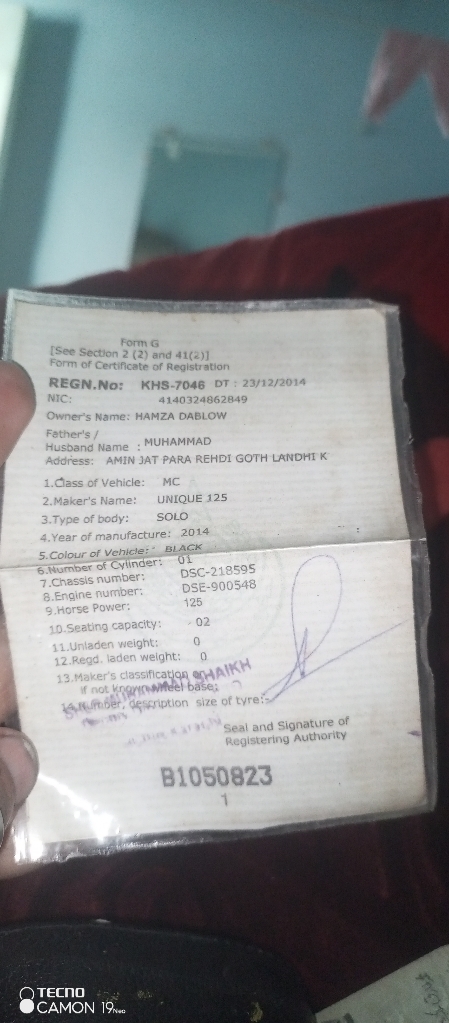 Form G
[See Section 2 (2) and 41(2)]
Form of Certificate of Registration
REGN.No: KHS-7046 DT : 23/12/2014
NIC: 4140324862849
Owner's Name: HAMZA DABLOW
Father's /
Husband Name : MUHAMMAD
Address: AMIN JAT PARA REHDI GOTH LANDHI K
1.Class of Vehicle: MC
2.Maker's Name: UNIQUE 125
3.Type of body: SOLO
4.Year of manufacture: 2014
5.Colour of Vehicle: BLACK
6.Number of Cylinder: 01
7.Chassis number: DSC-218595
8.Engine number: DSE-900548
9.Horse Power: 125
10.Seating capacity: 02
11.Unladen weight: 0
12.Regd. laden weight: 0
13.Maker's classification or
if not known wheel base:
SHAIKH
14.Number, description size of tyre:
Seal and Signature of
Registering Authority
B1050823
1
TECNO
CAMON 19Neo